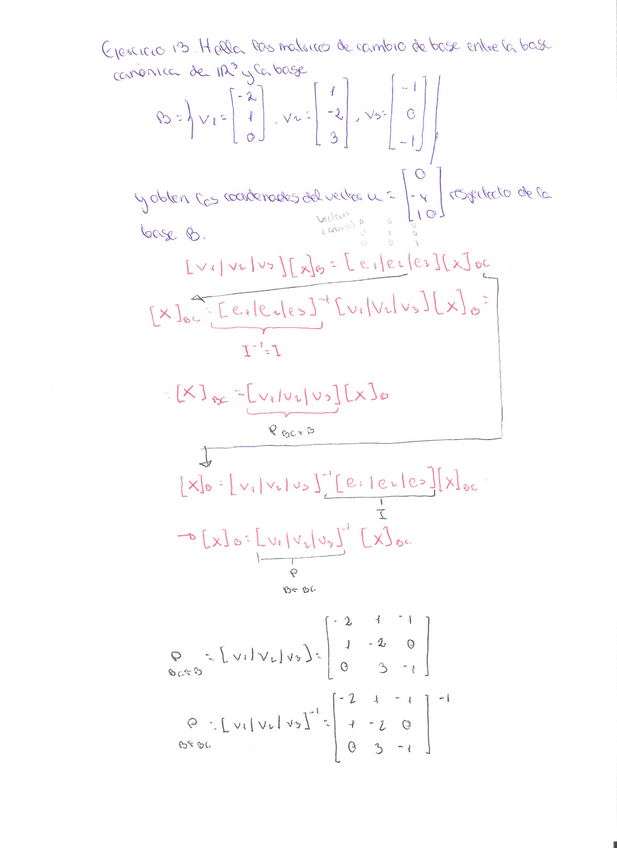 Ejercicio 13. Halla las matrices de cambio de base entre la base
canónica de IR³ y la base
B = { v₁ = [-2 1 0], v₂ = [1 -2 3], v₃ = [-1 0 -1] }
y obten las coordenadas del vector u = [0 -4 10] respecto de la
base B.
[v₁/v₂/v₃][x]B = [e₁/e₂/e₃][x]BC
[x]BC = [e₁/e₂/e₃]⁻¹ [v₁/v₂/v₃][x]B =
I⁻¹ = I
[x]BC = [v₁/v₂/v₃][x]B
P BC←B
[x]B = [v₁/v₂/v₃]⁻¹ [e₁/e₂/e₃][x]BC
I
→ [x]B = [v₁/v₂/v₃]⁻¹ [x]BC
P
B←BC
P BC←B = [v₁/v₂/v₃] = [-2 1 -1
1 -2 0
0 3 -1]
P B←BC = [v₁/v₂/v₃]⁻¹ = [-2 1 -1
1 -2 0
0 3 -1]⁻¹